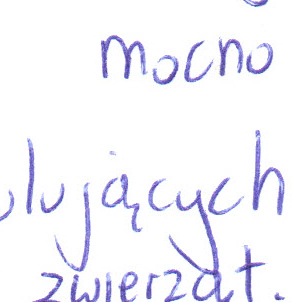 mocno
ulujących
zwierząt.